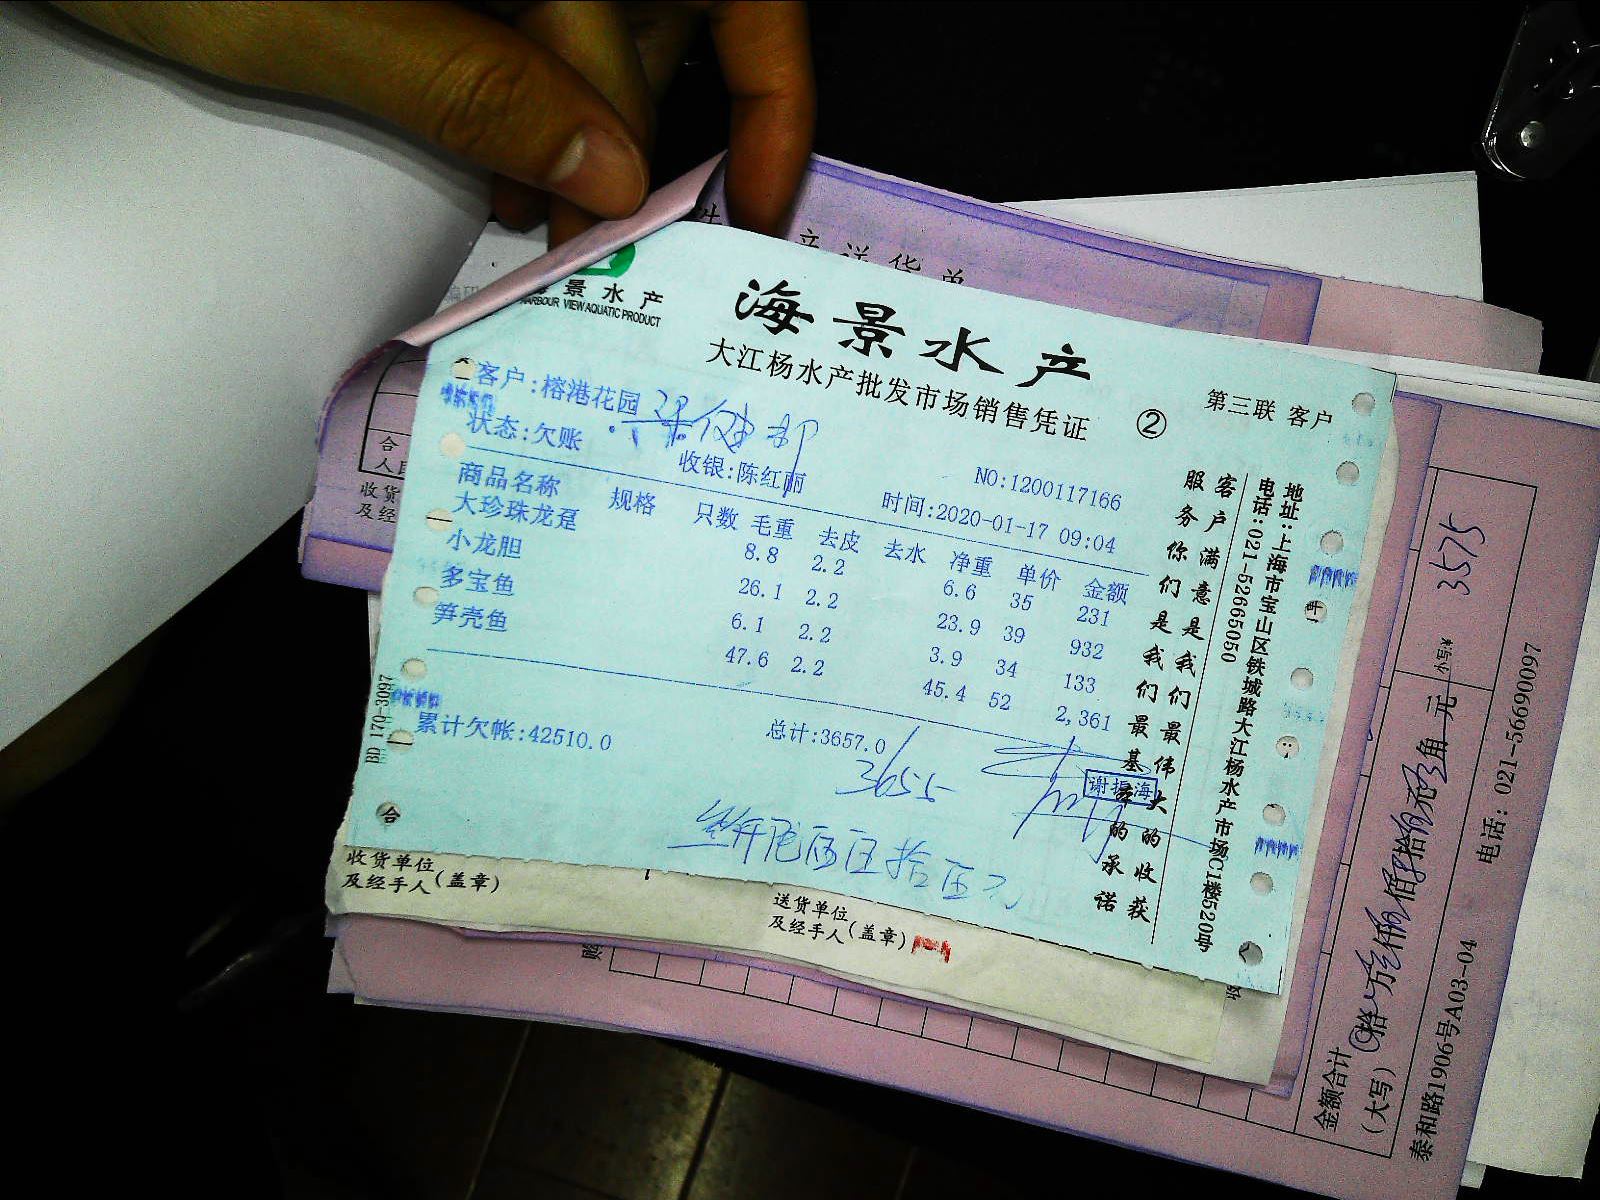 产送货单
景水产
HARBOUR VIEW AQUATIC PRODUCT
海景水产
大江杨水产批发市场销售凭证
② 第三联 客户
客户:榕港花园
状态:欠账
收银:陈红丽
NO:1200117166
时间:2020-01-17 09:04
商品名称 规格 只数 毛重 去皮 去水 净重 单价 金额
大珍珠龙趸 8.8 2.2 6.6 35 231
小龙胆 26.1 2.2 23.9 39 932
多宝鱼 6.1 2.2 3.9 34 133
笋壳鱼 47.6 2.2 45.4 52 2,361
累计欠帐:42510.0 总计:3657.0
3655
谢振海
BD 170-3097
合
客户满意是我们最伟大的收获
服务你们是我们最基本的承诺
地址:上海市宝山区铁城路大江杨水产市场C1楼520号
电话:021-52665050
收货单位
及经手人(盖章)
送货单位
及经手人(盖章)
合
人民
收货
及经
金额合计
(大写)
小写:¥ 3575
泰和路1906号A03-04 电话: 021-56690097